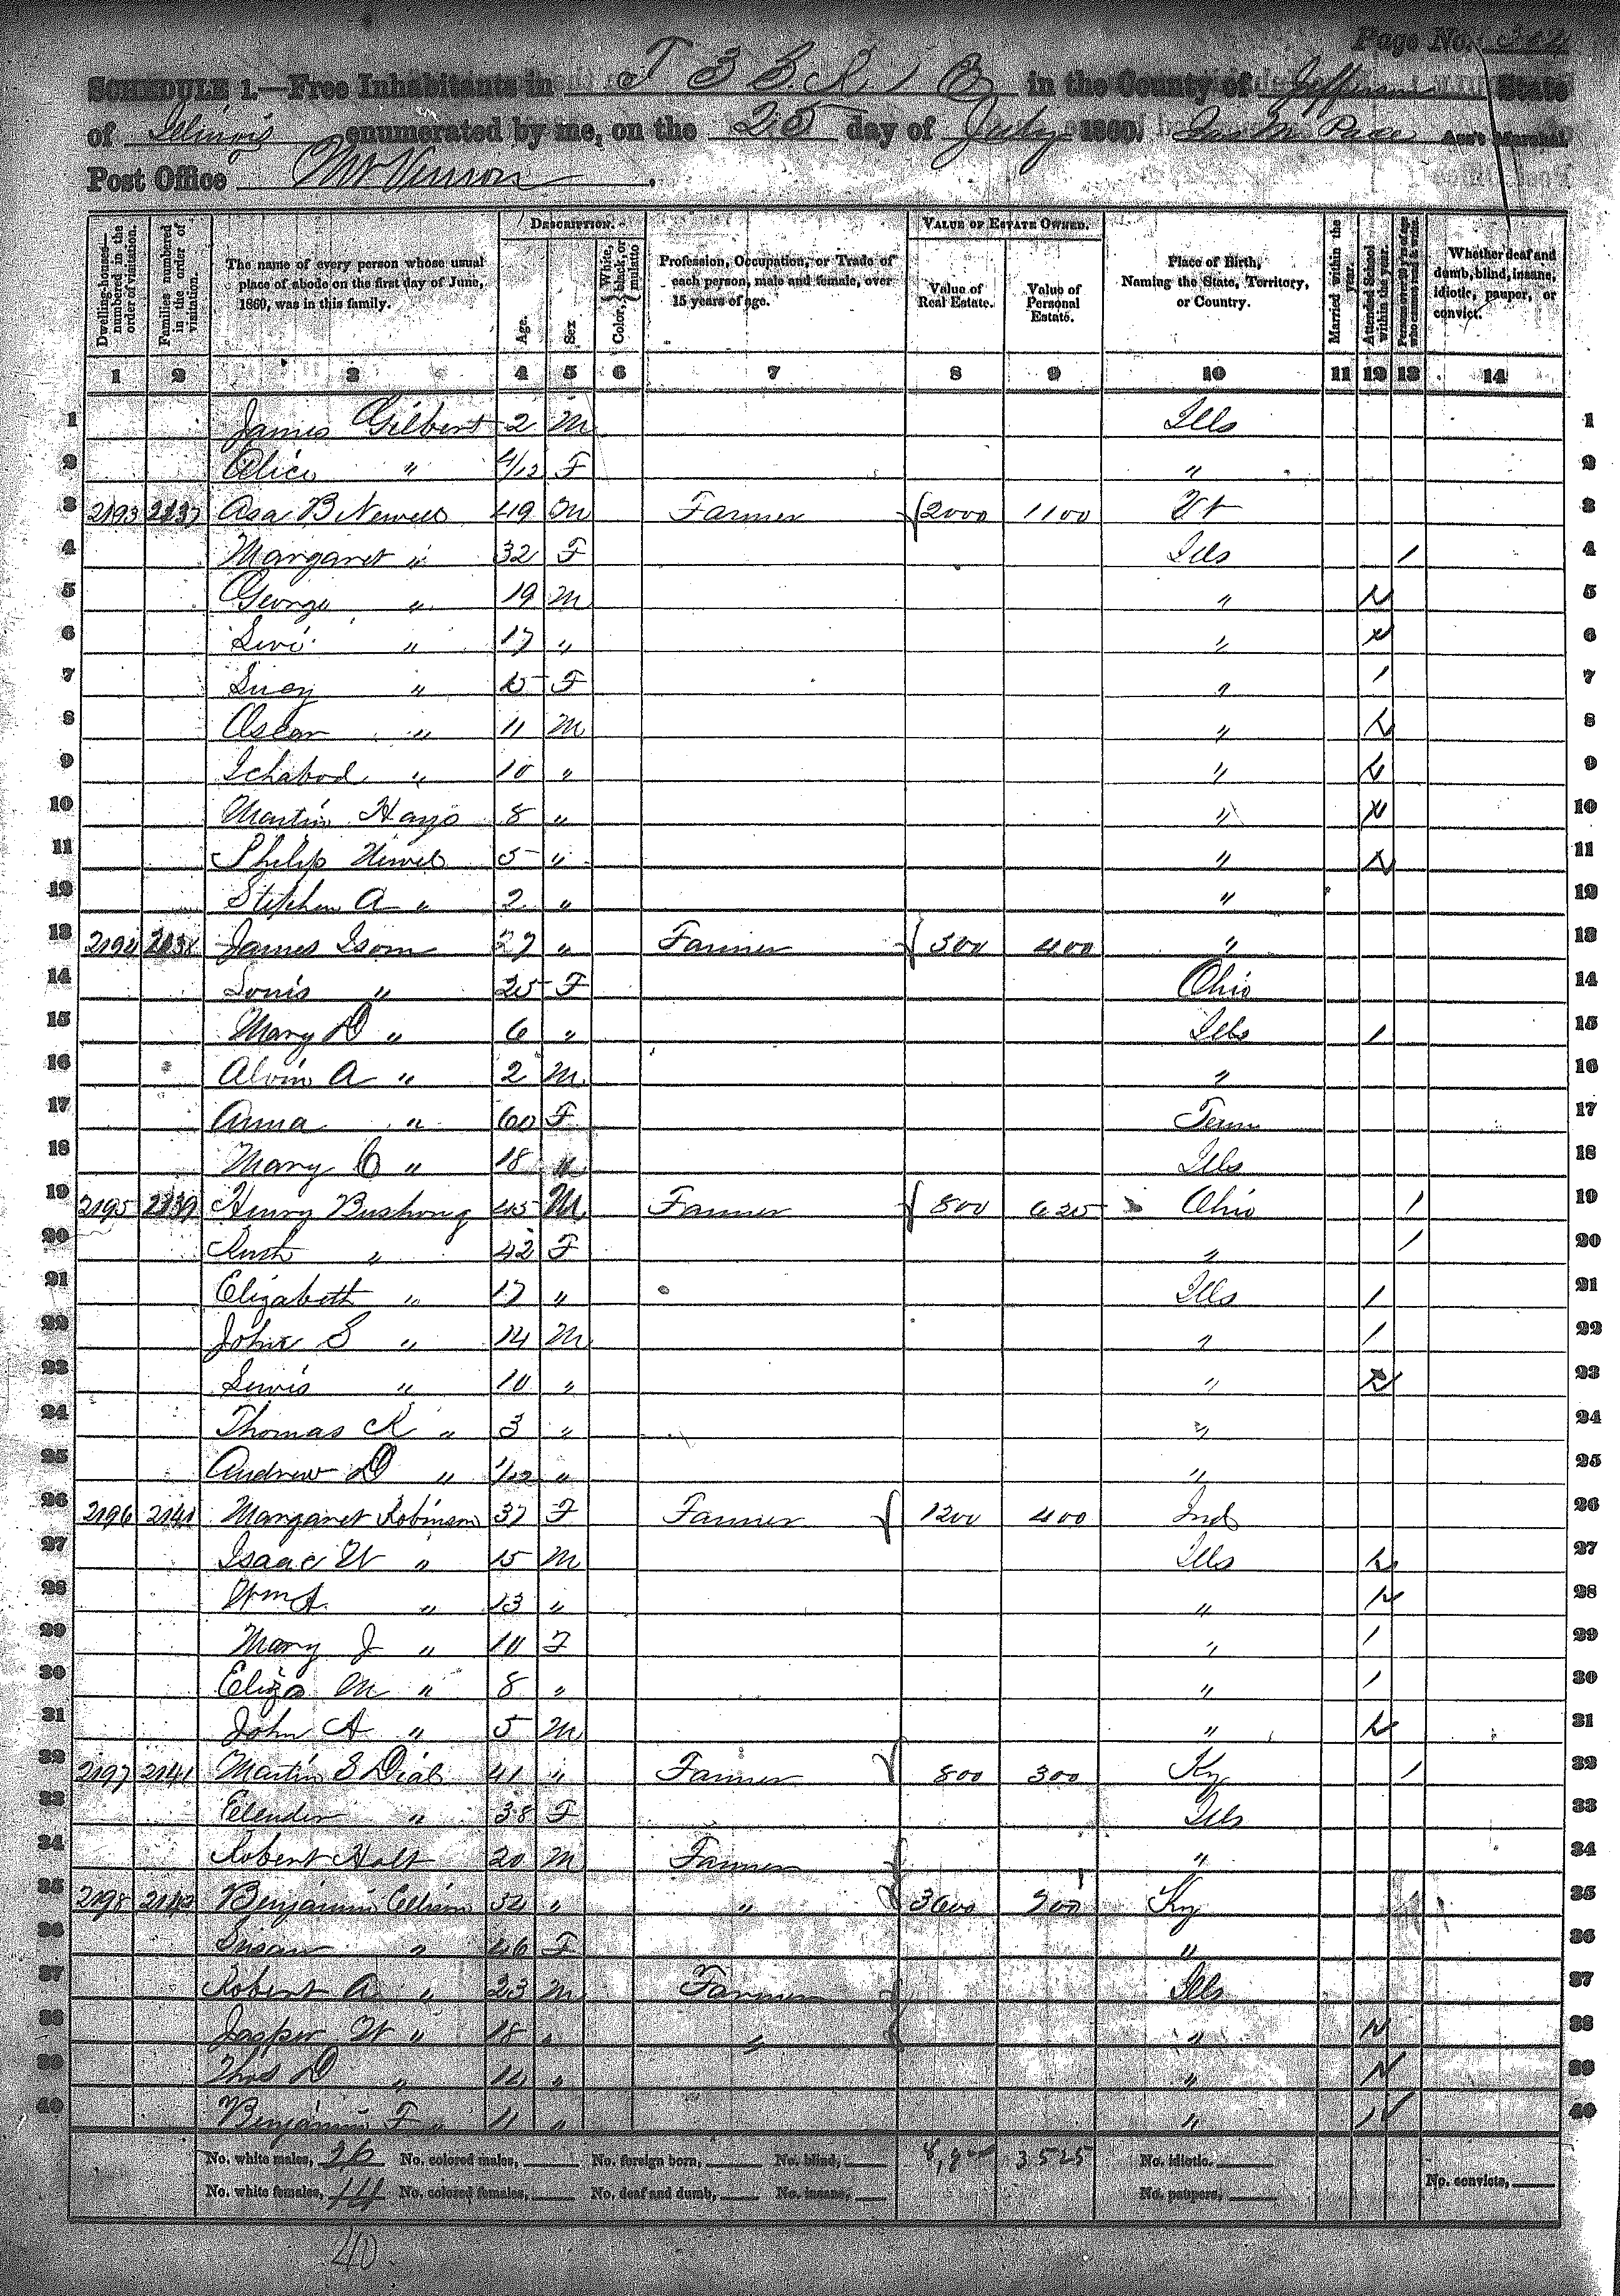 Page No. 304
SCHEDULE 1.—Free Inhabitants in T 3 S. R. 1 E in the County of Jefferson State
of Illinois enumerated by me, on the 25 day of July 1860. Jas M Pace Ass't Marshal.
Post Office Mt Vernon
Dwelling-houses—numbered in the order of visitation.
Families numbered in the order of visitation.
The name of every person whose usual place of abode on the first day of June, 1860, was in this family.
DESCRIPTION.
Age.
Sex
Color, White, black, or mulatto
Profession, Occupation, or Trade of each person, male and female, over 15 years of age.
VALUE OF ESTATE OWNED.
Value of Real Estate.
Value of Personal Estate.
Place of Birth, Naming the State, Territory, or Country.
Married within the year.
Attended School within the year.
Persons over 20 y'rs of age who cannot read & write.
Whether deaf and dumb, blind, insane, idiotic, pauper, or convict.
1 2 3 4 5 6 7 8 9 10 11 12 13 14
1 James Gilbert 2 M Ills 1
2 Alice " 4/12 F " 2
3 2193 2137 Asa B Newell 49 M Farmer 2000 1100 Vt 3
4 Margaret " 32 F Ills / 4
5 George " 19 M " 5
6 Levi " 17 " " 6
7 Lucy " 15 F " / 7
8 Oscar " 11 M " 8
9 Ichabod " 10 " " 9
10 Martin Hays 8 " " 10
11 Philip Newel 5 " " 11
12 Stephen A " 2 " " 12
13 2194 2138 James Isom 27 " Farmer 300 400 " 13
14 Louis " 25 F Ohio 14
15 Mary D " 6 " Ills / 15
16 Alvin A " 2 M " 16
17 Anna " 60 F Tenn 17
18 Mary C " 18 " Ills 18
19 2195 2139 Henry Bushong 45 M Farmer 800 625 Ohio / 19
20 Ruth " 42 F " / 20
21 Elizabeth " 17 " Ills / 21
22 John S " 14 M " / 22
23 Lewis " 10 " " 23
24 Thomas R " 3 " " 24
25 Andrew D " 1/12 " " 25
26 2196 2140 Margaret Robinson 37 F Farmer 1200 400 Ind 26
27 Isaac W " 15 M Ills 27
28 Wm A " 13 " " 28
29 Mary J " 10 F " / 29
30 Eliza M " 8 " " / 30
31 John A " 5 M " 31
32 2197 2141 Martin S Dial 41 " Farmer 800 300 Ky / 32
33 Elender " 38 F Ills 33
34 Robert Holt 20 M Farmer " 34
35 2198 2142 Benjamin Ellison 54 " " 3600 700 Ky 35
36 Susan " 46 F " 36
37 Robert A " 23 M Farmer Ills 37
38 Jasper W " 18 " " " 38
39 Thos D " 14 " " 39
40 Benjamin F " 11 " " 40
No. white males, 26 No. colored males, No. foreign born, No. blind, 3525 No. idiotic.
No. white females, 14 No. colored females, No. deaf and dumb, No. insane, No. paupers, No. convicts,
40